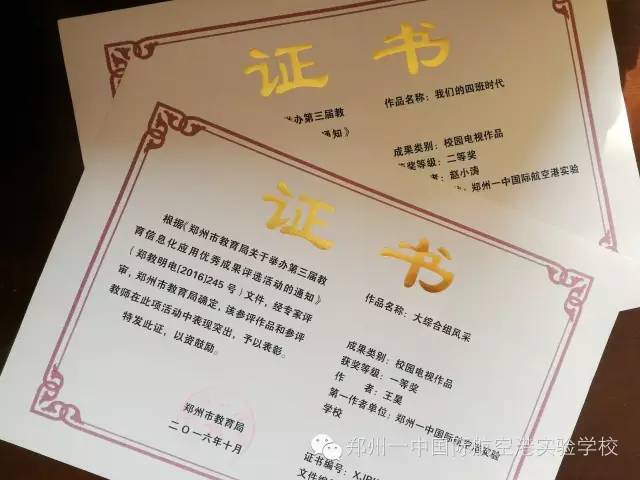 证书
举办第三届教
通知》
作品名称：我们的四班时代
成果类别：校园电视作品
奖等级：二等奖
者：赵小涛
郑州一中国际航空港实验
证书
根据《郑州市教育局关于举办第三届教
育信息化应用优秀成果评选活动的通知》
（郑教明电[2016]245 号）文件，经专家评
审，郑州市教育局确定，该参评作品和参评
教师在此项活动中表现突出，予以表彰。
特发此证，以资鼓励。
郑州市教育局
二〇一六年十月
作品名称：大综合组风采
成果类别：校园电视作品
获奖等级：一等奖
作 者：王昊
第一作者单位：郑州一中国际航空港实验
学校
证书编号：XJP
文件编
郑州一中国际航空港实验学校